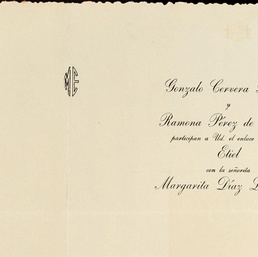 Gonzalo Cervera
y
Ramona Pérez de
participan a Ud. el enlace
Etiel
con la señorita
Margarita Díaz